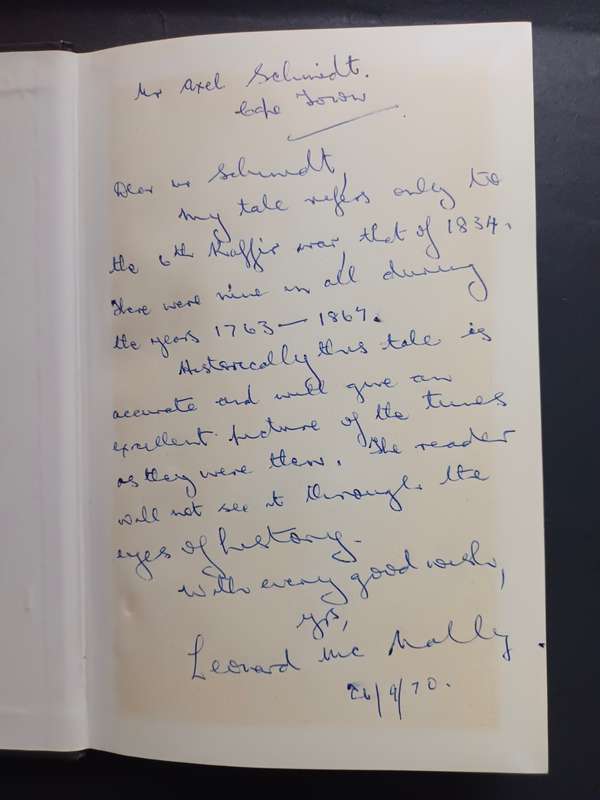 Mr Axel Schmidt.
Cape Town
Dear Mr Schmidt,
My tale refers only to
the 6th Kaffir war, that of 1834.
There were nine in all during
the years 1763—1867.
Historically this tale is
accurate and will give an
excellent picture of the times
as they were then. The reader
will not see it through the
eyes of history.
With every good wish,
Yrs,
Leonard Mc Nally
26/9/70.